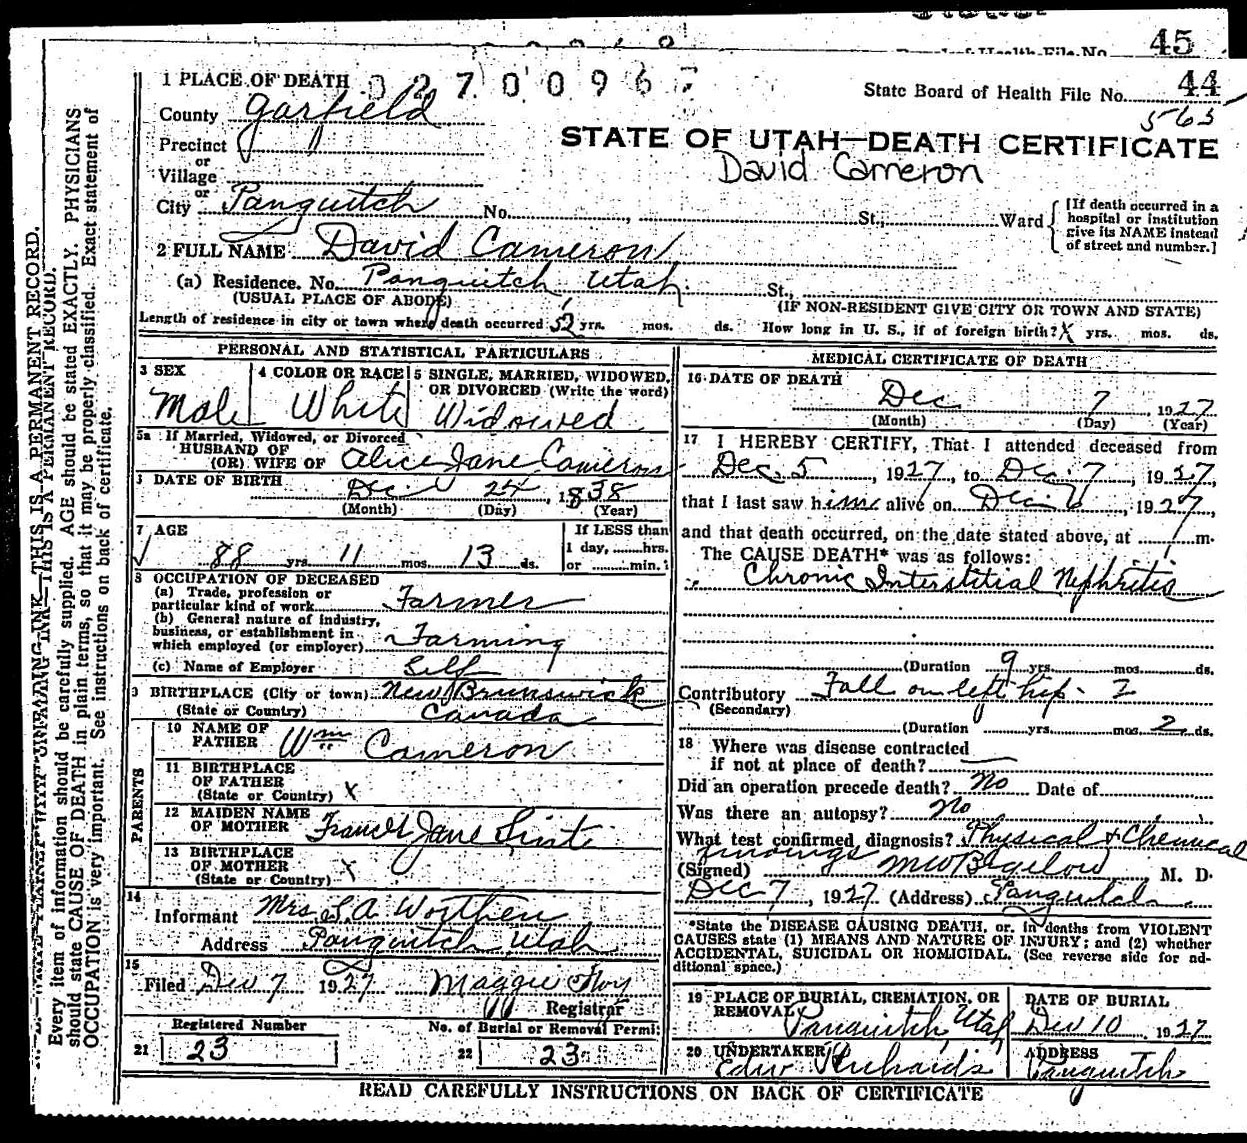 45
44
State Board of Health File No.
565
0 2 7 0 0 9 6
1 PLACE OF DEATH
County Garfield
Precinct "
or
Village
or
City Panguitch No. , St., Ward
STATE OF UTAH—DEATH CERTIFICATE
David Cameron
[If death occurred in a
hospital or institution
give its NAME instead
of street and number.]
2 FULL NAME David Cameron
(a) Residence. No. Panguitch, Utah. St.,
(USUAL PLACE OF ABODE)
(IF NON-RESIDENT GIVE CITY OR TOWN AND STATE)
Length of residence in city or town where death occurred 52 yrs. mos. ds. How long in U. S., if of foreign birth? X yrs. mos. ds.
PERSONAL AND STATISTICAL PARTICULARS
3 SEX
Male
4 COLOR OR RACE
White
5 SINGLE, MARRIED, WIDOWED,
OR DIVORCED (Write the word)
Widowed
5a If Married, Widowed, or Divorced
HUSBAND OF
(OR) WIFE OF Alice Jane Cameron
DATE OF BIRTH
Dec 24, 1838
(Month) (Day) (Year)
7 AGE
88 yrs 11 mos 13 ds.
If LESS than
1 day, hrs.
or min.
8 OCCUPATION OF DECEASED
(a) Trade, profession or
particular kind of work Farmer
(b) General nature of industry,
business, or establishment in
which employed (or employer) Farming
(c) Name of Employer Self
BIRTHPLACE (City or town) New Brunswick
(State or Country) Canada
PARENTS
10 NAME OF
FATHER Wm Cameron
11 BIRTHPLACE
OF FATHER
(State or Country) X
12 MAIDEN NAME
OF MOTHER Frances Jane
13 BIRTHPLACE
OF MOTHER
(State or Country) X
14
Informant Mrs. S. A. Worthen
Address Panguitch Utah
15
Filed Dec 7 1927 Maggie Foy
Registrar
Registered Number
21 23
No. of Burial or Removal Permit
22 23
MEDICAL CERTIFICATE OF DEATH
16 DATE OF DEATH
Dec 7 1927
(Month) (Day) (Year)
17 I HEREBY CERTIFY, That I attended deceased from
Dec. 5, 1927, to Dec. 7, 1927,
that I last saw him alive on Dec. 6, 1927,
and that death occurred, on the date stated above, at 1 m.
The CAUSE DEATH* was as follows:
Chronic Interstitial Nephritis
(Duration 9 yrs. mos. ds.
Contributory Fall on left hip - 2
(Secondary)
(Duration yrs. mos. 2 ds.
18 Where was disease contracted
if not at place of death?
Did an operation precede death? No Date of
Was there an autopsy? No
What test confirmed diagnosis? Physical & Chemical
findings
(Signed) M W Bigelow, M. D.
Dec 7, 1927 (Address) Panguitch
*State the DISEASE CAUSING DEATH, or, in deaths from VIOLENT
CAUSES state (1) MEANS AND NATURE OF INJURY; and (2) whether
ACCIDENTAL, SUICIDAL OR HOMICIDAL. (See reverse side for ad-
ditional space.)
19 PLACE OF BURIAL, CREMATION, OR
REMOVAL Panguitch, Utah
DATE OF BURIAL
Dec 10 1927
20 UNDERTAKER
Edw Richards
ADDRESS
Panguitch
READ CAREFULLY INSTRUCTIONS ON BACK OF CERTIFICATE
THIS IS A PERMANENT RECORD.
Every item of information should be carefully supplied. AGE should be stated EXACTLY. PHYSICIANS
should state CAUSE OF DEATH in plain terms, so that it may be properly classified. Exact statement of
OCCUPATION is very important. See instructions on back of certificate.